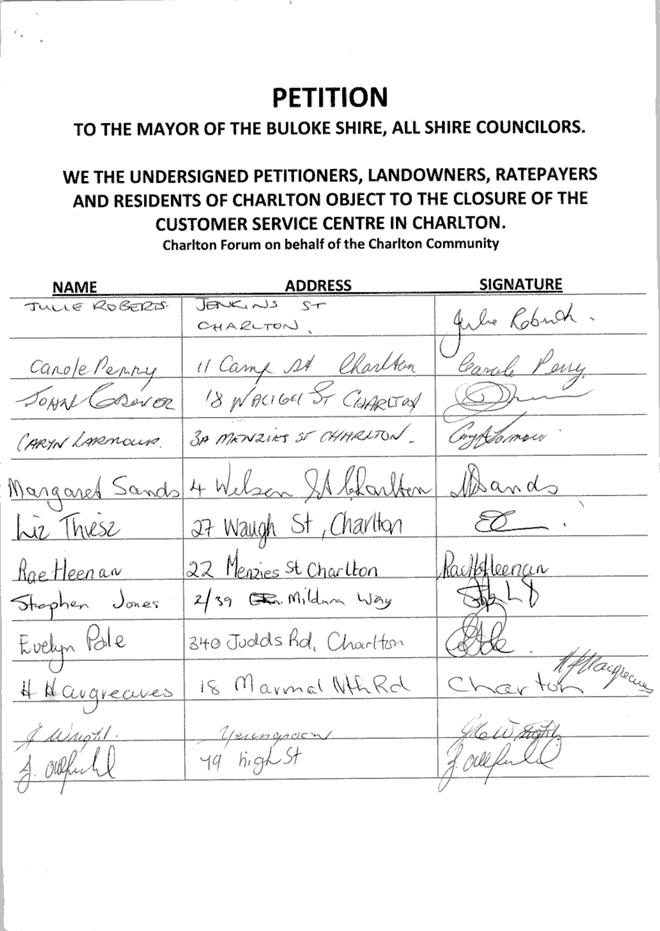 PETITION
TO THE MAYOR OF THE BULOKE SHIRE, ALL SHIRE COUNCILORS.
WE THE UNDERSIGNED PETITIONERS, LANDOWNERS, RATEPAYERS
AND RESIDENTS OF CHARLTON OBJECT TO THE CLOSURE OF THE
CUSTOMER SERVICE CENTRE IN CHARLTON.
Charlton Forum on behalf of the Charlton Community
NAME ADDRESS SIGNATURE
JULIE ROBERTS JENKINS ST
CHARLTON.
Carole Penny 11 Camp St Charlton Carole Perry
JOHN 18 ST CHARLTON
CARYN LARMOUR. 3A MENZIES ST CHARLTON.
Margaret Sands 4 Wilson St Charlton MSands
Liz Thiesz 27 Waugh St, Charlton
Rae Heenan 22 Menzies St Charlton Rae Heenan
Stephen Jones 2/39 Mildura Way
Evelyn Pole 340 Judds Rd, Charlton
H Hargreaves 18 Marmal Nth Rd Charlton HHargreaves
J Wright. Yeungroon Wright
J. 49 high St J.